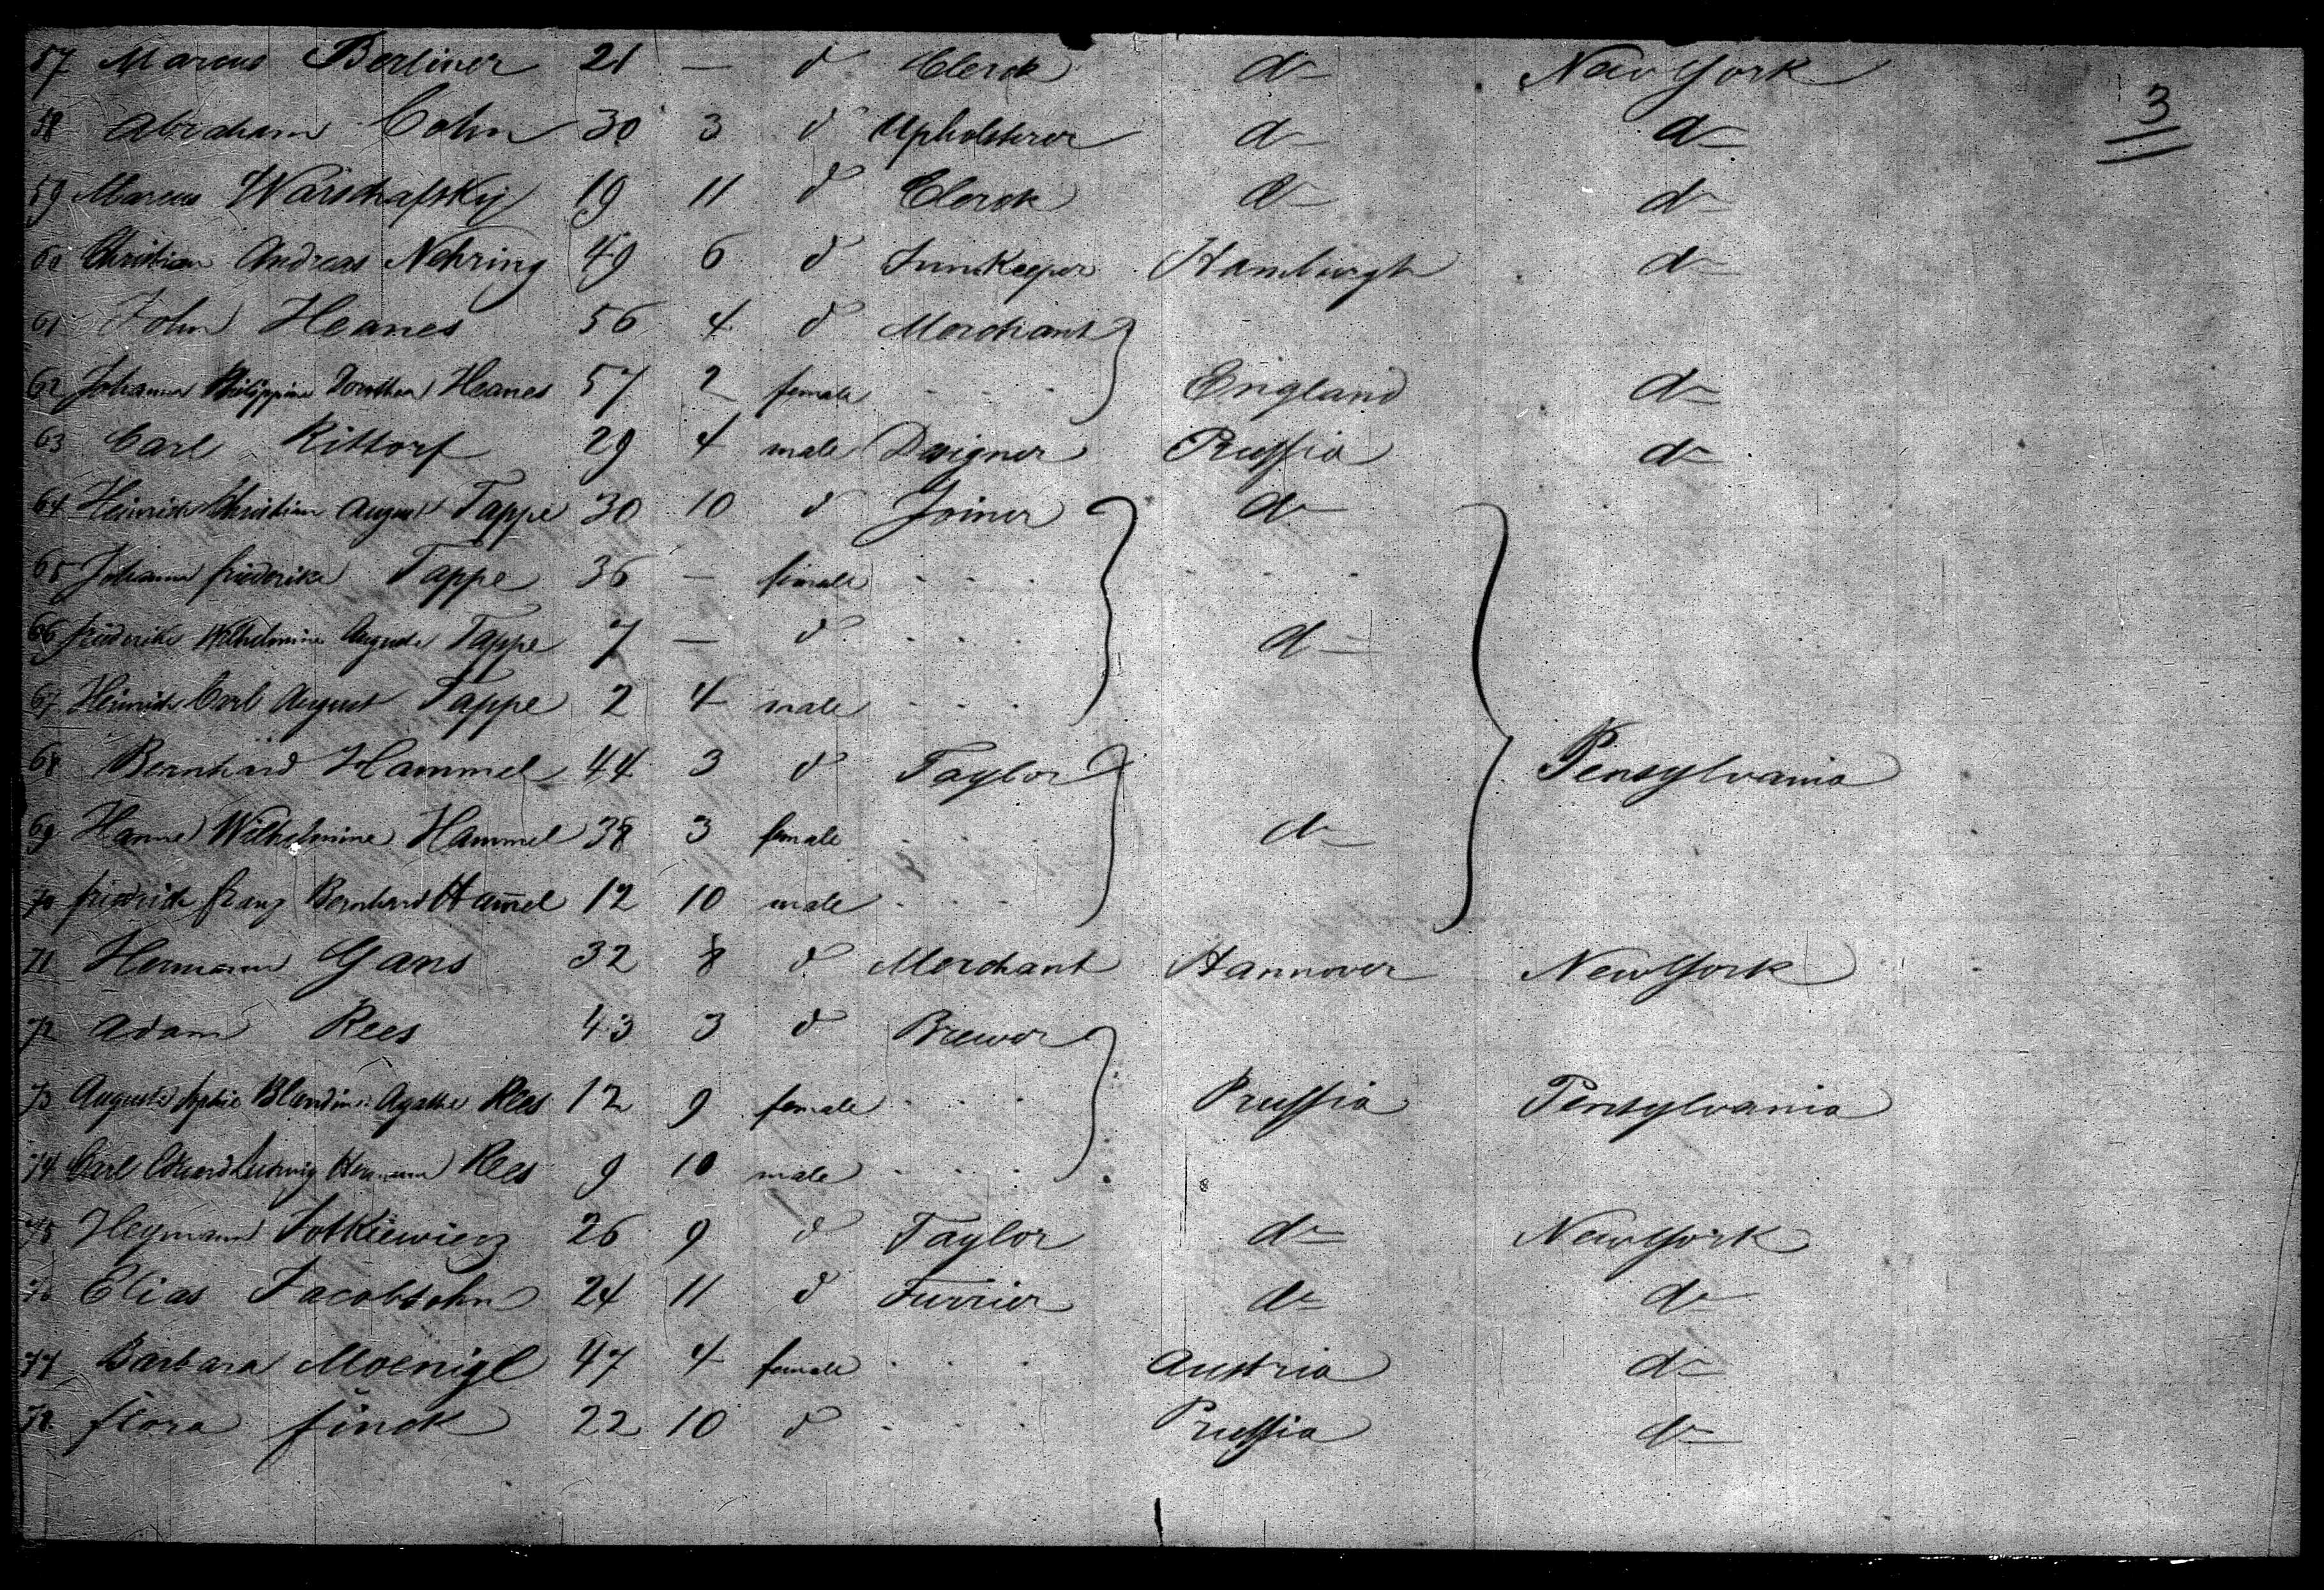 57 Marcus Berliner 21 — d Clerck do New York
3
58 Abraham Cohn 30 3 d Upholsterer do do
59 Marcus Warschafsky 19 11 d Clerck do do
60 Christian Andreas Nehring 49 6 d Innkeeper Hamburgh do
61 John Heanes 56 4 d Merchant
62 Johanna Philippine Dorothea Heanes 57 2 female England do
63 Carl Rittorf 29 4 male Designer Prussia do
64 Heinrich Christian August Tappe 30 10 d Joiner do
65 Johanna friederike Tappe 36 — female
66 friederike Wilhelmine Auguste Tappe 7 — d do
67 Heinrich Carl August Tappe 2 4 male
68 Bernhard Hammel 44 3 d Taylor Pensylvania
69 Hanne Wilhelmine Hammel 38 3 female do
70 friedrich franz Bernhard Ham̄el 12 10 male
71 Hermann Gans 32 8 d Merchant Hannover New York
72 Adam Rees 43 3 d Brewer
73 Auguste sophie Blandine Agathe Rees 12 9 female Prussia Pensylvania
74 Carl Eduard Ludwig Hermann Rees 9 10 male
75 Heymann Jotkiewicz 26 9 d Taylor do New York
76 Elias Jacobsohn 24 11 d Furrier do do
77 Barbara Moenigl 47 4 female Austria do
78 flora finck 22 10 d Prussia do